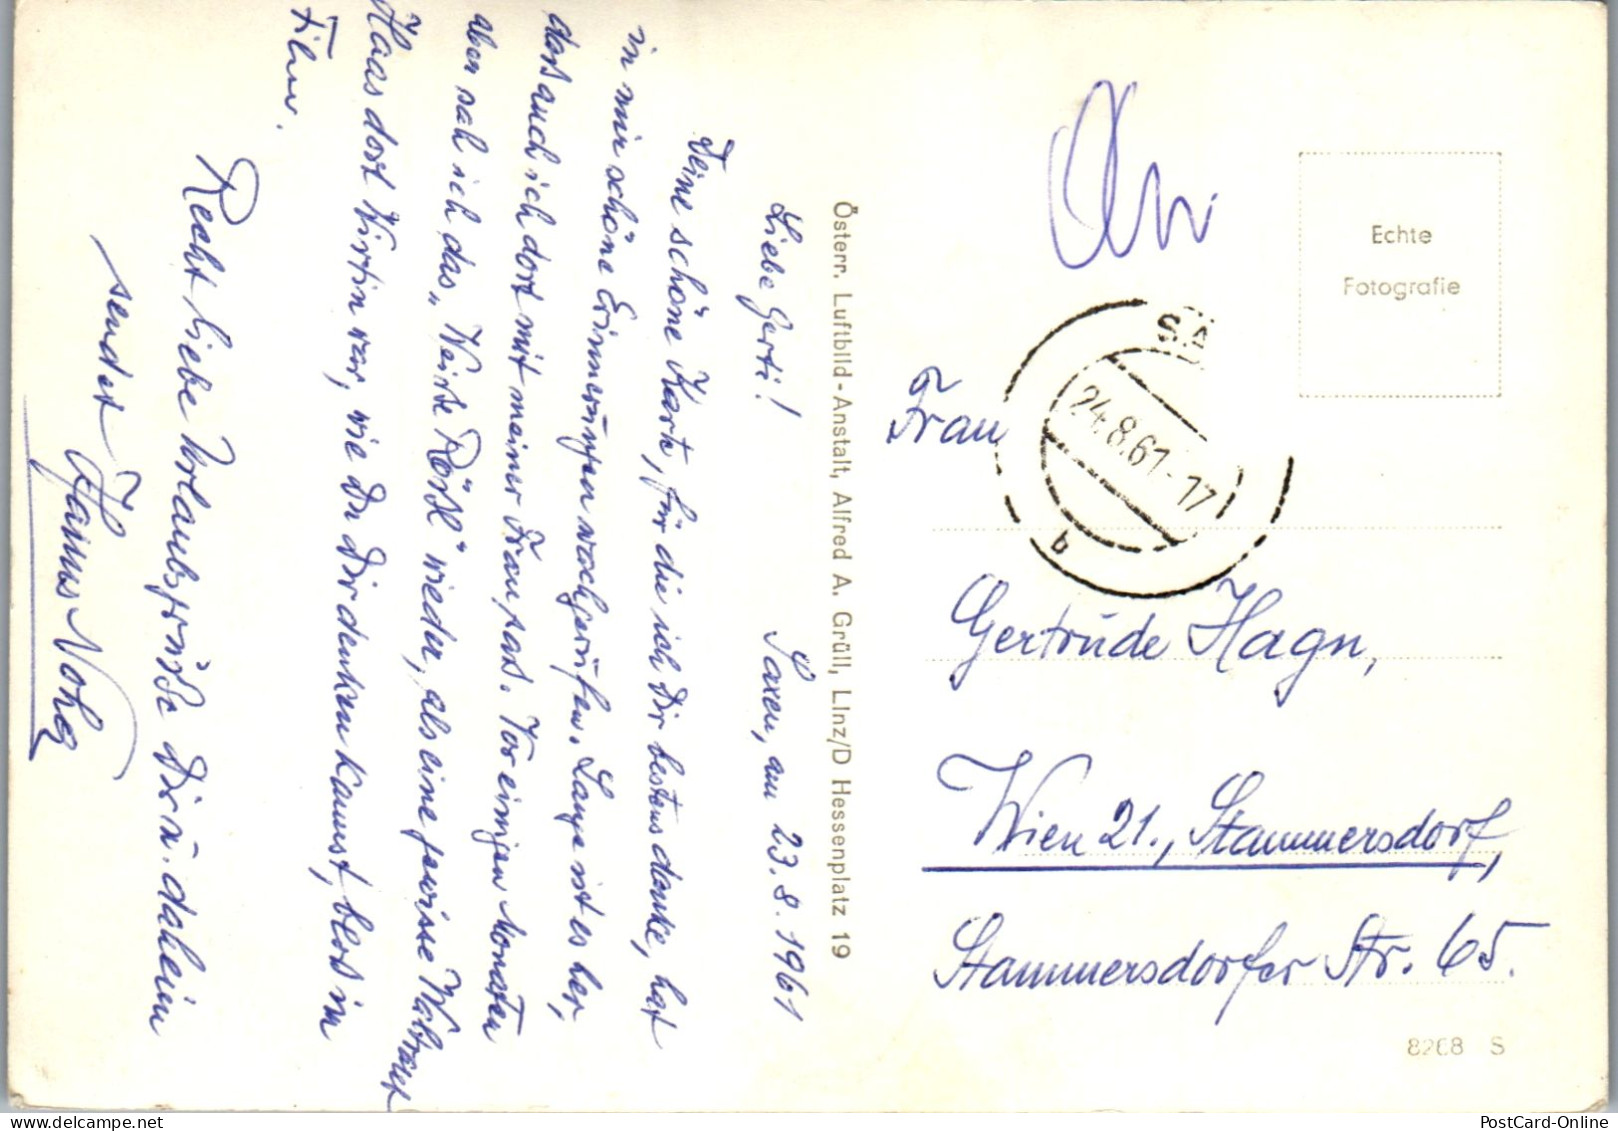 Saxen, am 23.8.1961
Liebe Gerti!
Deine schöne Karte, für die ich Dir bestens danke, hat
in mir schöne Erinnerungen wachgerufen. Lange ist es her,
daß auch ich dort mit meiner Frau saß. Vor einigen Monaten
aber sah ich das „Weiße Rößl" wieder, als eine gewisse Waltraut
Haas dort Wirtin war, wie Du Dir denken kannst, blos im
Film.
Recht liebe Urlaubsgrüße Dir u. daheim
sendet
Österr. Luftbild-Anstalt, Alfred A. Grüll, Linz/D Hessenplatz 19
Echte
Fotografie
SA
24.8.61-17
b
Frau
Gertrude Hagn,
Wien 21., Stammersdorf,
Stammersdorfer Str. 65.
8268 S
PostCard-Online